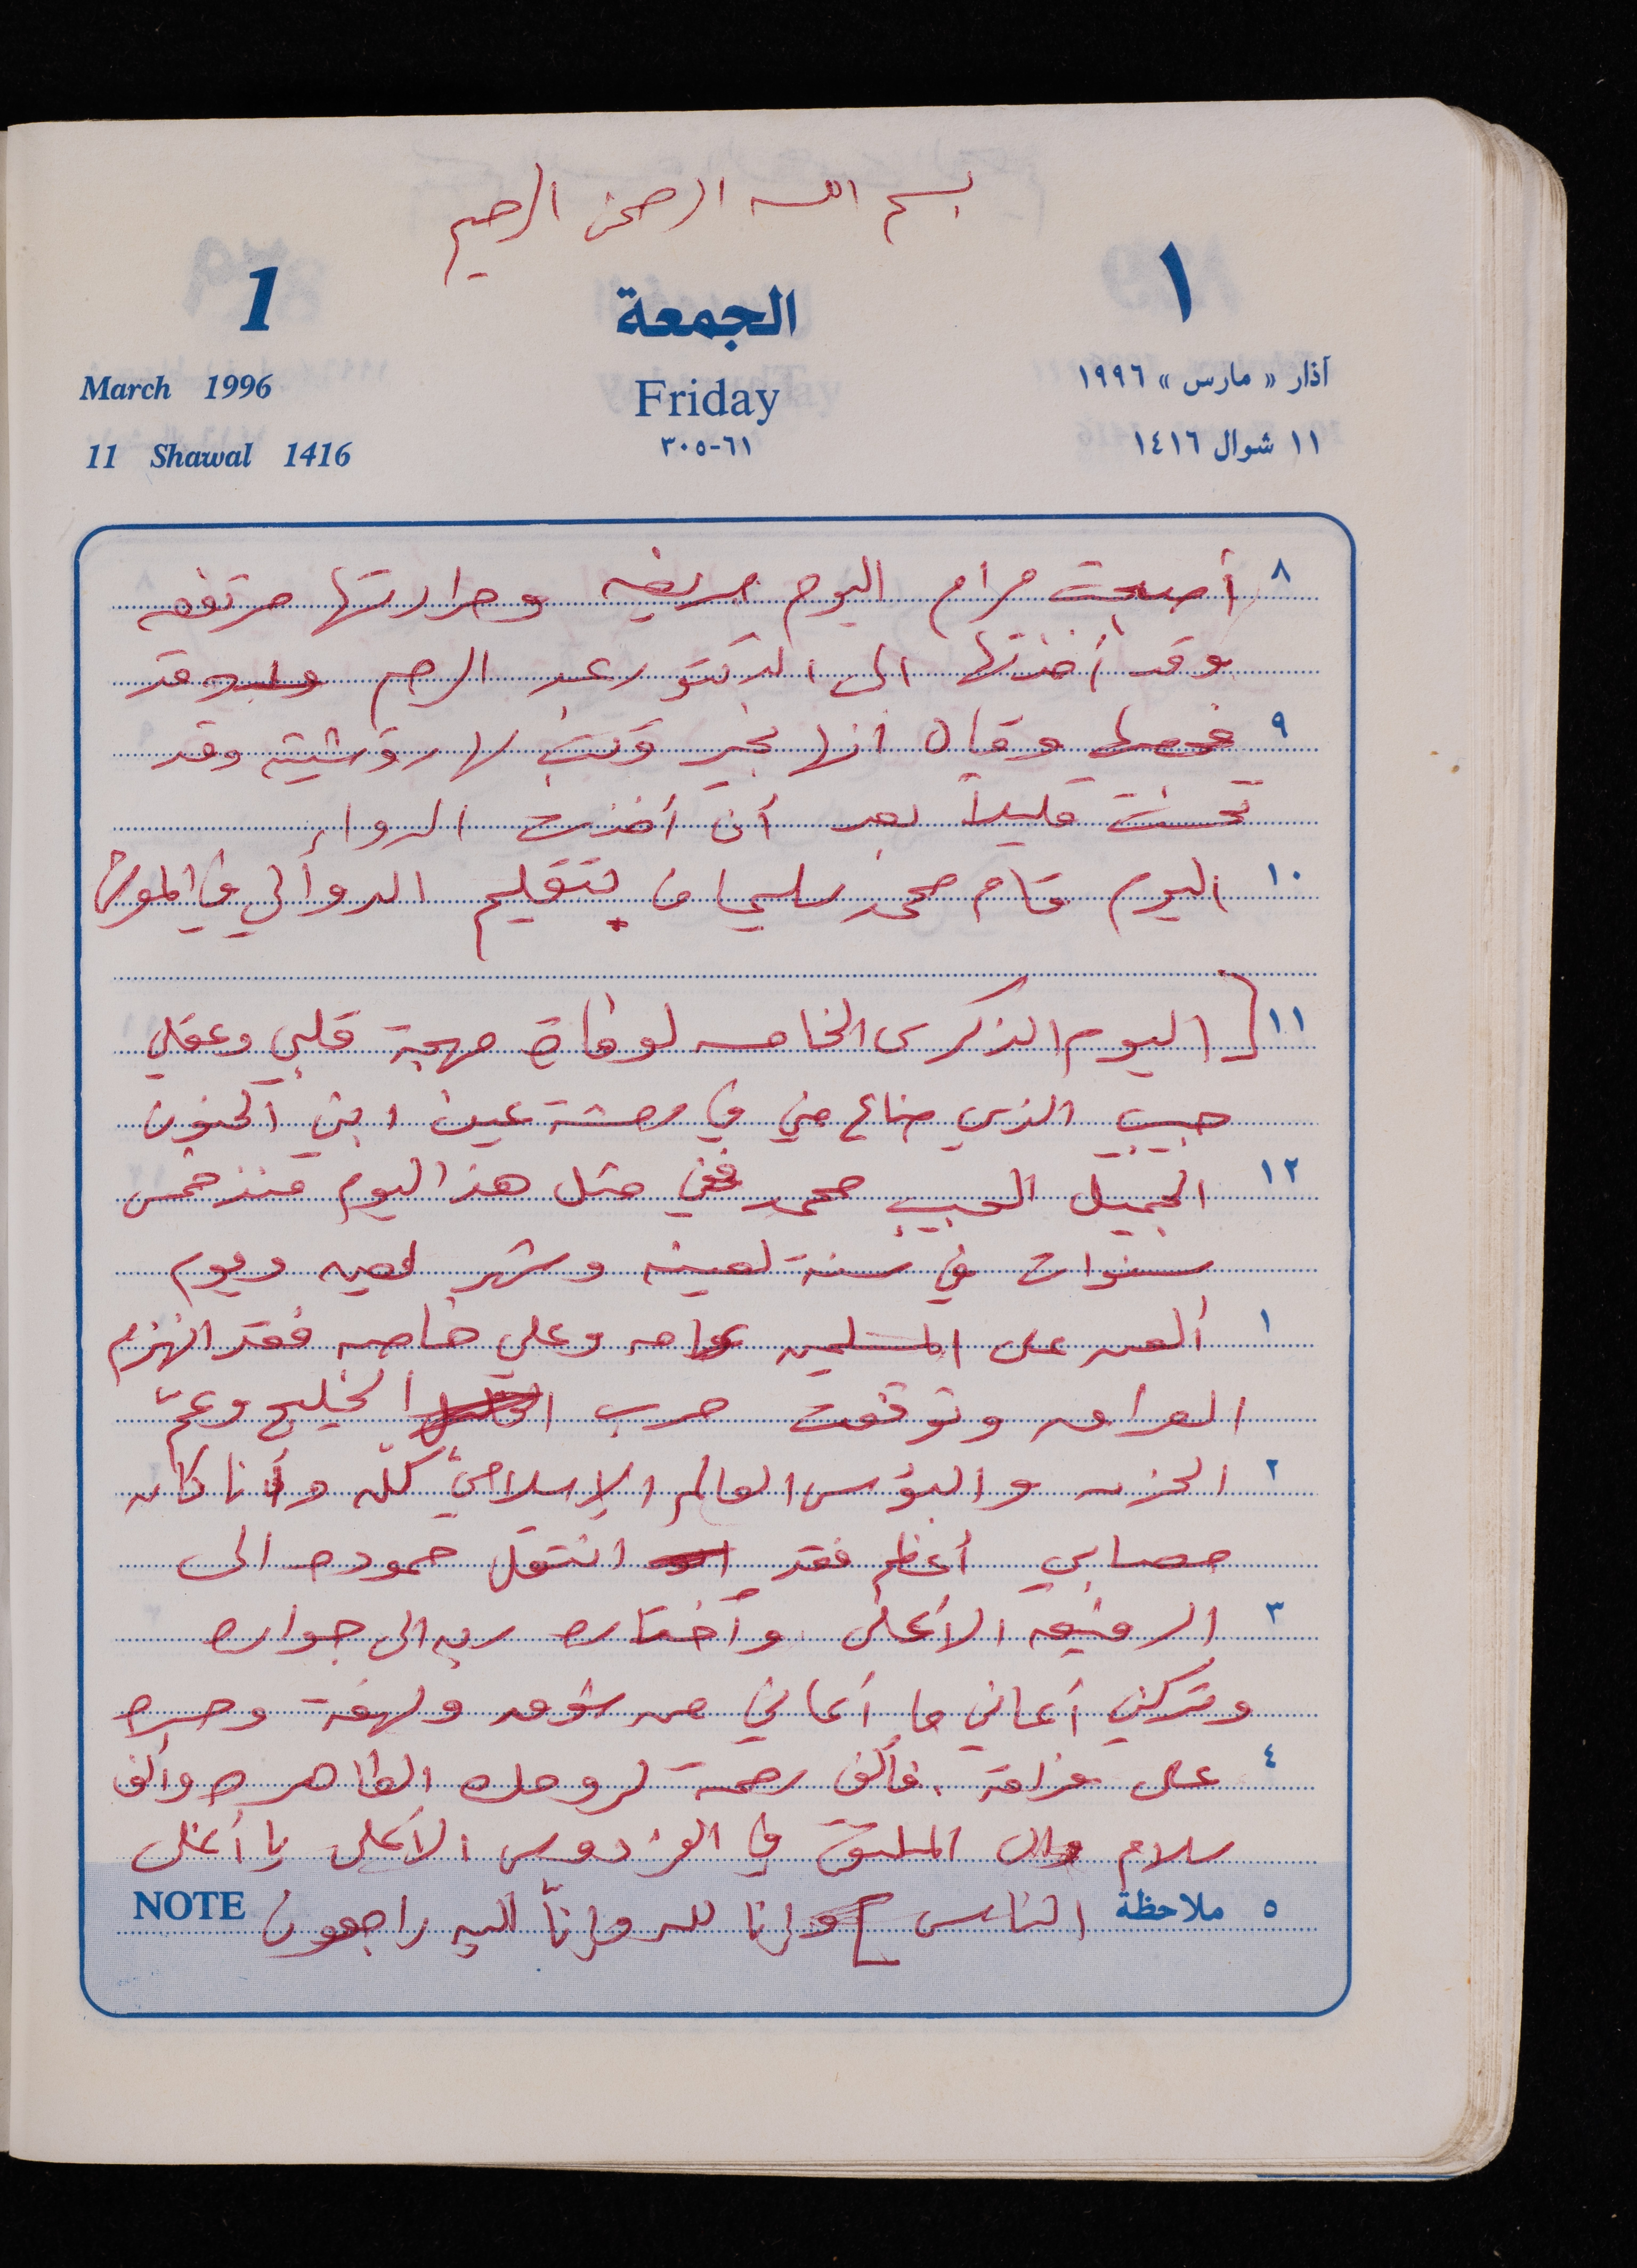 بسم الله الرحمن الرحيم
1 الجمعة ١
March 1996 Friday آذار « مارس » ١٩٩٦
11 Shawal 1416 ٦١-٣٠٥ ١١ شوال ١٤١٦
٨ أصبحت مرام اليوم مريضه وحرارتها مرتفعه
وقد أخذتها الى الدكتور عبد الرحيم وقد
٩ فحصها وقال انها بخير وكتب لها روشيته وقد
تحسنت قليلاً بعد أن أخذت الدواء
١٠ اليوم قام محمد سليمان بتقليم الدوالي في المورس
١١ [ اليوم الذكرى الخامسه لوفاة مهجة قلبي وعقلي
حبيبي الذي ضاع مني في رمشة عين ابني الحنون
١٢ الجميل الحبيب محمد ففي مثل هذا اليوم منذ خمس
سنوات في سنة لعينه وشهر لعين ويوم
١ ألعن على المسلمين عامه وعلي خاصه فقد انهزم
العراق وتوقفت حرب الخليج وعمّ
٢ الحزن والبؤس العالم الإسلامي كله وأنا كان
مصابي أعظم فقد انتقل حموده الى
٣ الرفيق الأعلى وأختاره ربه الى جواره
وتركني أعاني ما أعاني من شوق ولهفة وحسره
٤ على فراقه . فألف رحمة لروحك الطاهره وألف
سلام والى الملتقى في الفردوس الأعلى يا أغلى
٥ ملاحظة الناس ] وإنا لله وإنا اليه راجعون NOTE